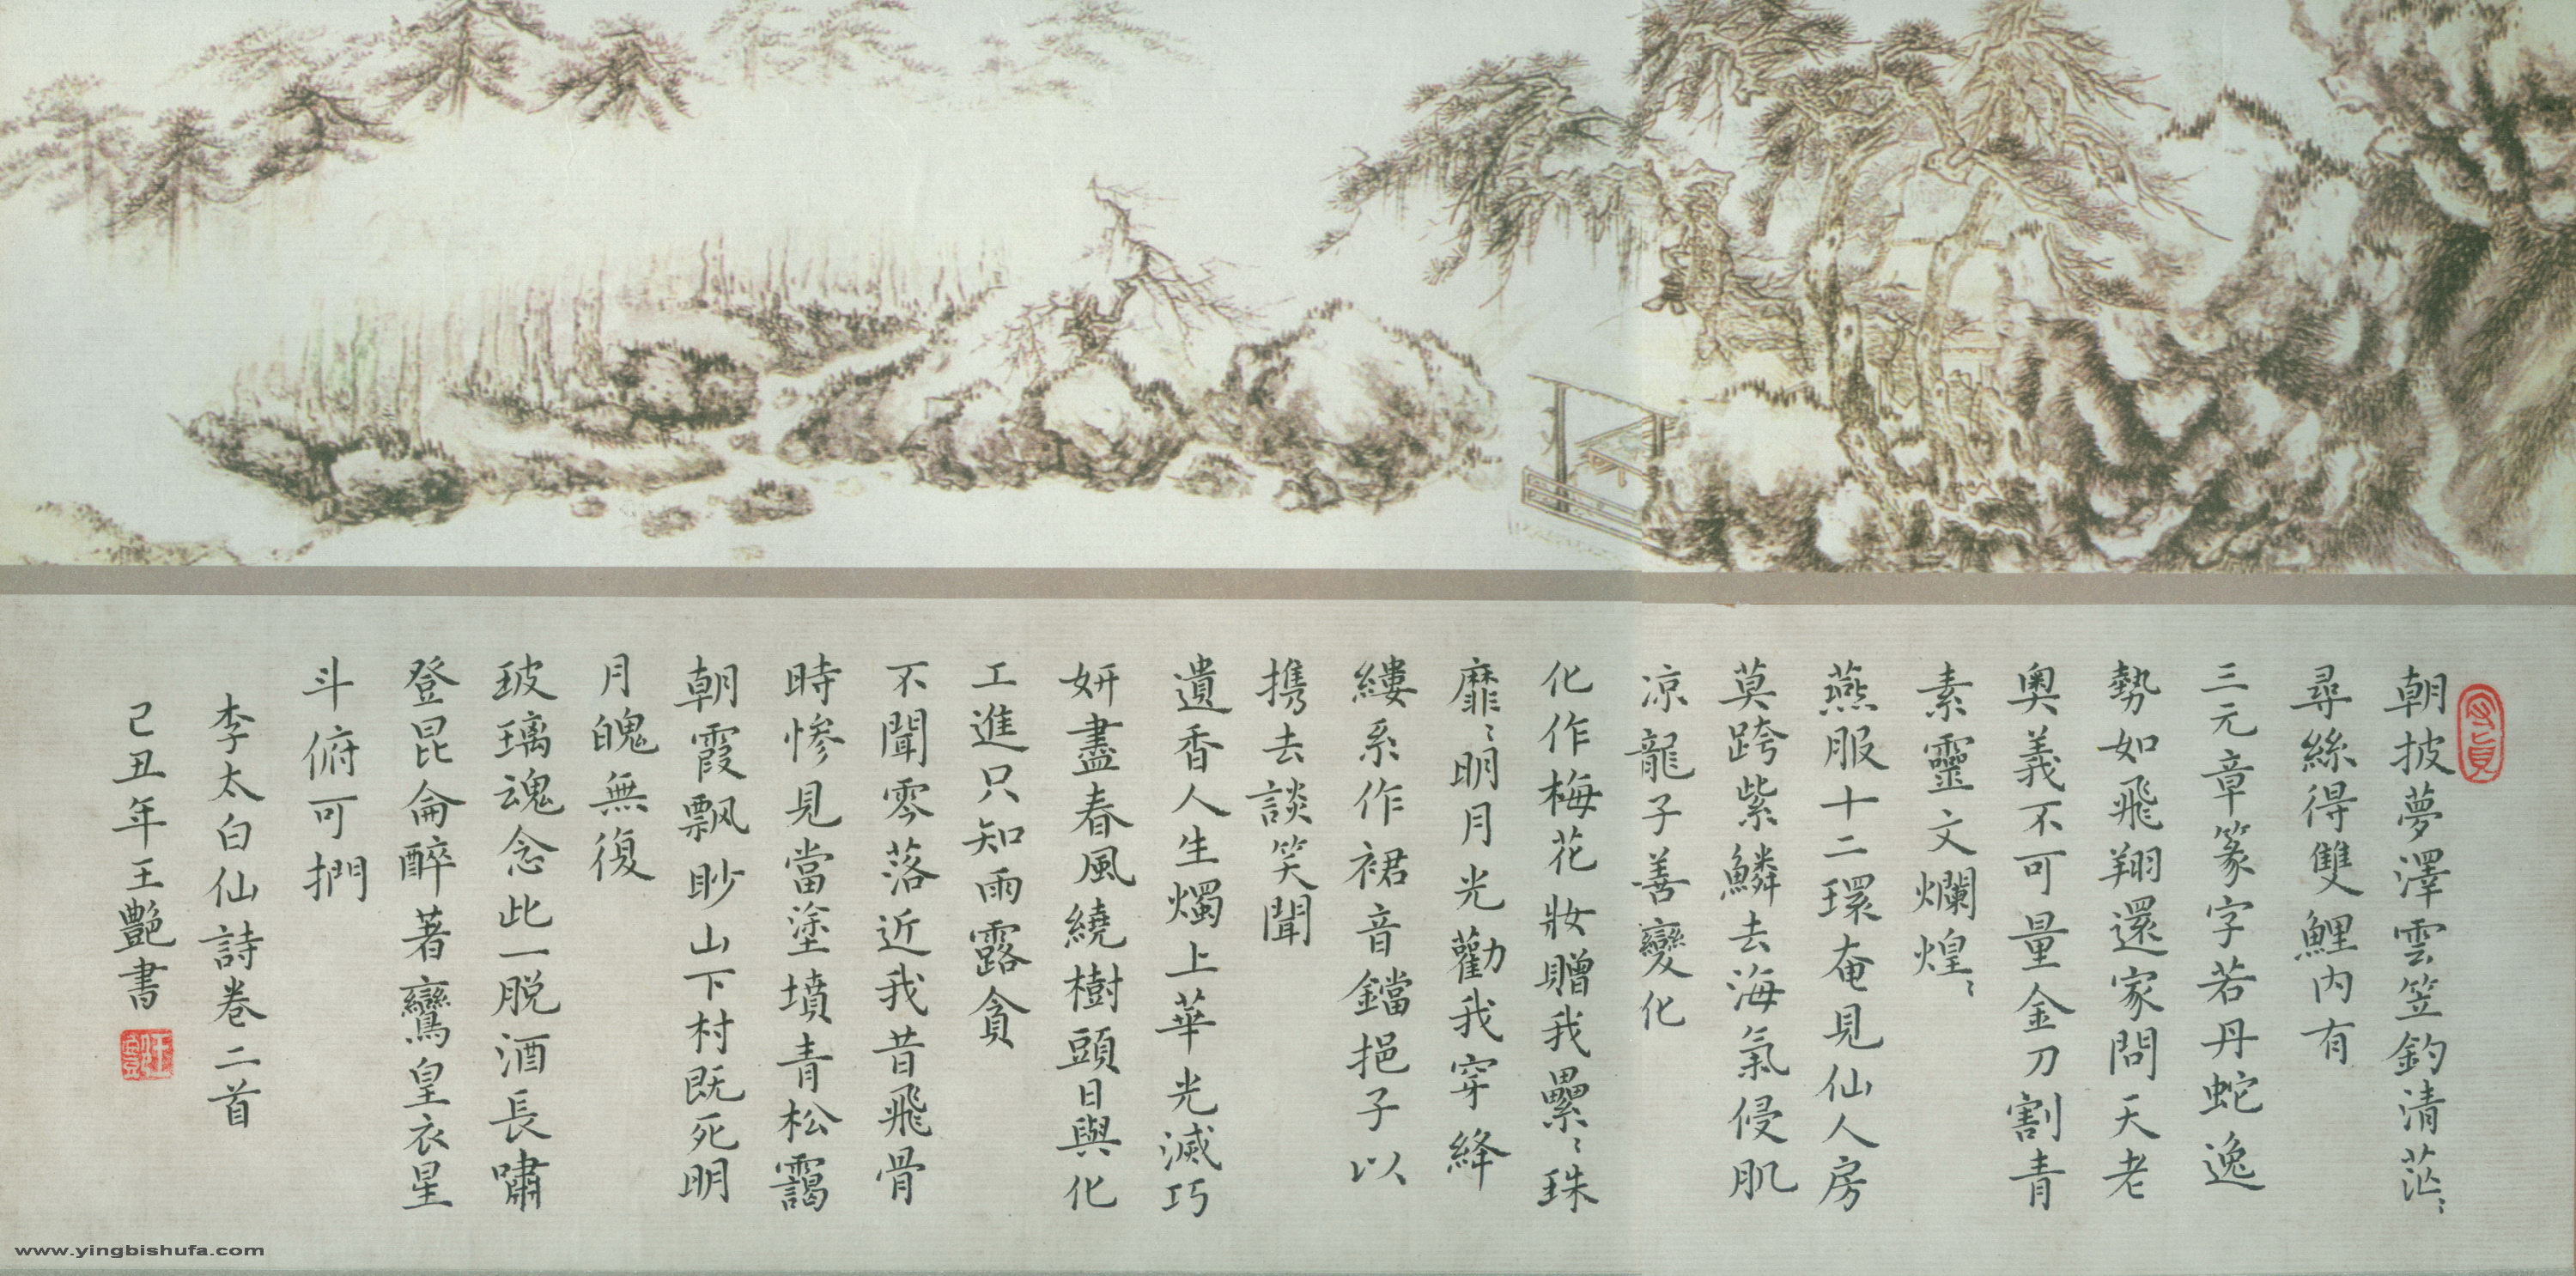 朝披夢澤雲笠釣清茫〻
尋絲得雙鯉内有
三元章篆字若丹蛇逸
勢如飛翔還家問天老
奥義不可量金刀割青
素靈文爛煌〻
燕服十二環奄見仙人房
莫跨紫鱗去海氣侵肌
凉龍子善變化
化作梅花妝贈我纍〻珠
靡〻明月光勸我穿絳
縷系作裙音鐺挹子以
携去談笑聞
遺香人生燭上華光滅巧
妍盡春風繞樹頭日與化
工進只知雨露貪
不聞零落近我昔飛骨
時惨見當塗墳青松靄
朝霞飘眇山下村既死明
月魄無復
玻璃魂念此一脱洒長嘯
登昆侖醉著鸞皇衣星
斗俯可捫
李太白仙詩卷二首
己丑年王艷書
www.yingbishufa.com